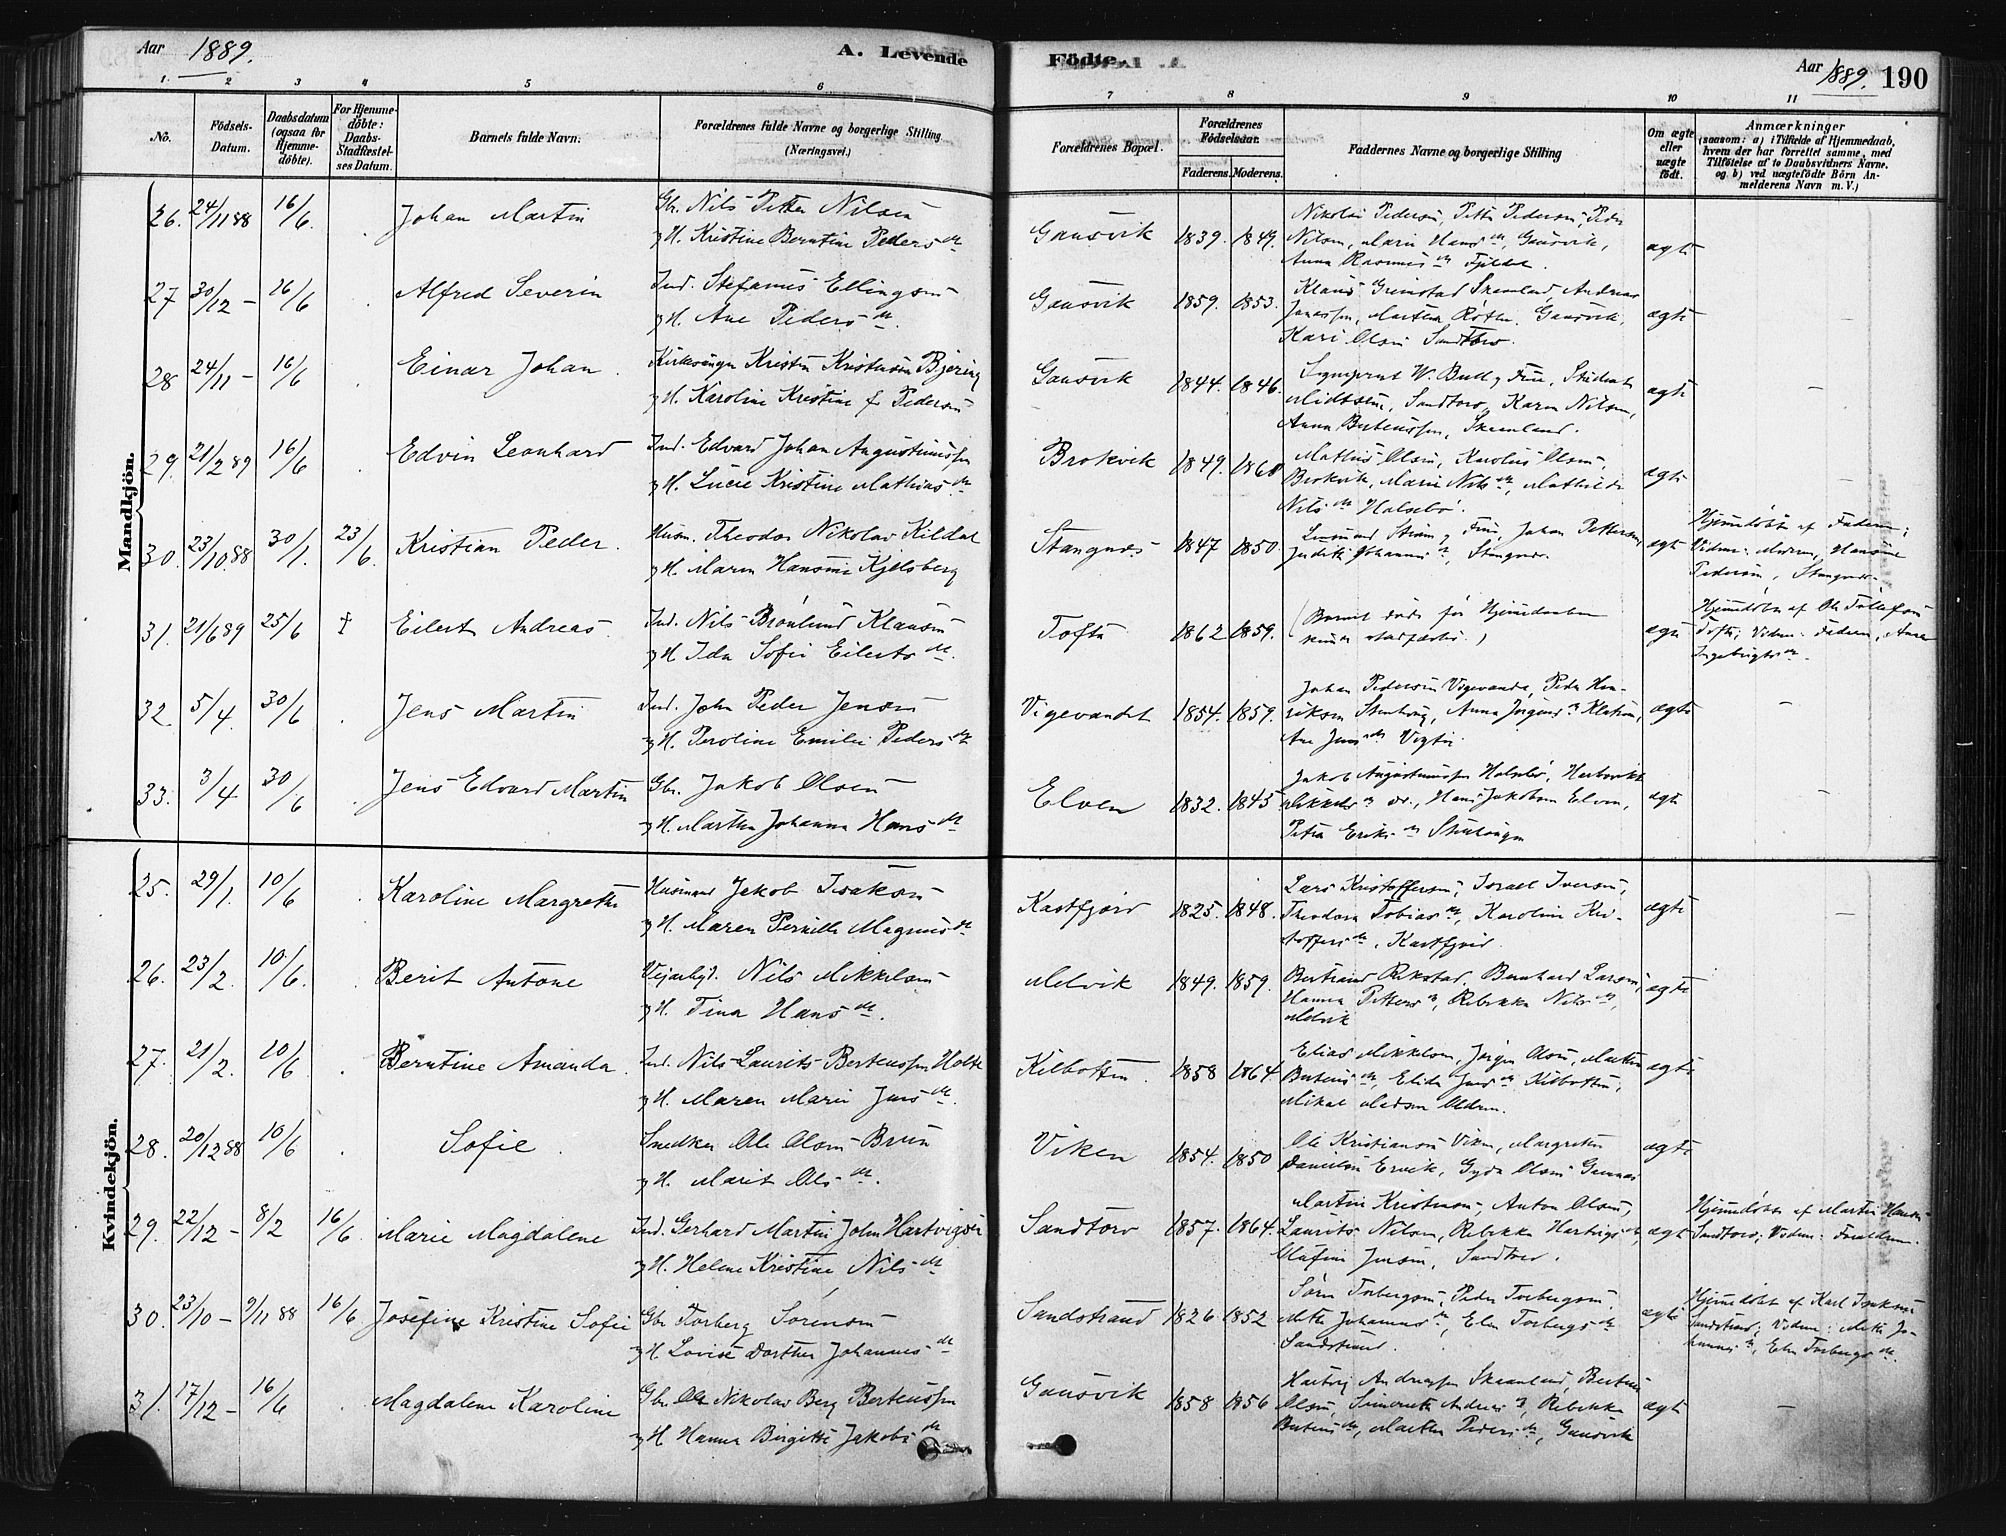 Aar 1889.
A. Levende
Födte.
Aar 1889. 190
1. 2 3 4 5 6 7 8 9 10 11
No.
Födsels-Datum.
Daabsdatum (ogsaa for Hjemme-döbte).
For Hjemme-döbte: Daabs-Stadfæstel-ses Datum.
Barnets fulde Navn.
Forældrenes fulde Navne og borgerlige Stilling. (Næringsvei.)
Forældrenes Bopæl.
Forældrenes Födselsaar.
Faderens. Moderens.
Faddernes Navne og borgerlige Stilling
Om ægte eller uægte födt.
Anmærkninger
(saasom: a) i Tilfælde af Hjemmedaab,
hvem der har forrettet samme, med
Tilföielse af to Daabsvidners Navne.
og b) ved uægtefödte Börn An-
melderens Navn m. V.)
Mandkjön.
26. 24/11 88 16/6. Johan Martin
Gbr. Nils Petter Nilsen
og H. Kristine Berntine Pedersdtr
Gausvik 1839. 1849.
Nikolai Pedersen, Petter Pedersen, Peder
Nilsen, Marie Hansdtr, Gausvik,
Anna Rasmusdtr Fjeldet.
ægte
27 30/12 – 16/6 Alfred Severin
Ind. Stefanus Ellingsen
og H. Ane Pedersdtr.
Gausvik 1859. 1853.
Klaus Grenstad Skaanland, Andreas
Gausvik,
Kari Olsen Sandtorv.
ægte
28 24/11 – 16/6 Einar Johan.
Kirkesanger Kristen Kristensen Bjering
og H. Karoline Kristine f. Pedersen
Gausvik 1844. 1846.
Sogneprest W. Bull og Frue, Student
Sandtorv, Karen Nilsen,
Anna Bertenssen, Skaanland.
ægte –
29. 21/2 89 16/6 Edvin Leonhard
Ind. Edvard Johan Augustinussen
og H. Lucie Kristine Mathiasdtr
Brokvik 1849. 1860
Mathias Olsen, Karolius Olsen,
Brokvik, Marie Nilsdtr, Mathilde
Nilsdtr Halsebø.
ægte –
30. 23/10 88 30/1. 23/6. Kristian Peder.
Husm. Theodor Nikolai Kildal
og H. Maren Hansine Kjelsberg
Stangnes 1847 1850.
Lensmand Strøm og Frue, Johan Pettersen,
Judith Johannesdtr, Stangnes.
ægte
Hjemdøbt af Faderen;
Vidner: Moderen, Hansine
Pedersen, Stangnes.
31. 21/6 89 25/6 † Eilert Andreas.
Ind. Nils Brønlund Klausen
og H Ida Sofie Eilertsdtr.
Toften 1862 1859.
(Barnet døde før Hjemmedaaben
kunde stadfæstes.)
ægte
Hjemdøbt af Ole Tollefsen
Toften; Vidner: Faderen, Anne
Ingebrigtsdtr.
32 5/4. 30/6 Jens Martin
Ind. John Peder Jensen
og H. Peroline Emilie Pedersdtr
Vigevandet 1854. 1859.
Johan Pedersen Vigevandet, Peder Hen-
riksen Stenhaug, Anna Jørgensdtr
Ane Jensdtr
ægte –
33. 3/4 30/6 Jens Edvard Martin
Gbr. Jakob Olsen
og H. Marthe Johanna Hansdtr
Elven 1832. 1845
Jakob Augustinussen Halsebø,
Mikkelsdtr do., Hans Jakobsen Elven,
Petra Eriksdtr
ægte –
Kvindekjön.
25. 29/1. 10/6 Karoline Margrethe
Husmand Jakob Isaksen
og H. Maren Pernille Magnusdtr
Kastfjord 1825. 1848.
Lars Kristoffersen, Israel Iversen,
Theodora Tobiasdtr, Karoline Kri-
stoffersdtr, Kastfjord.
ægte –
26. 23/2. 10/6. Berit Antone
Vejarbejd. Nils Mikkelsen
og H. Tina Hansdtr.
Melvik 1849. 1859.
Bertrand Rikstad, Bernhard Larsen,
Hanna Pettersdtr, Rebekka Nilsdtr,
Melvik
ægte
27. 21/2. 10/6 Berntine Amanda.
Ind. Nils Laurits Bertenssen Holte
og H. Maren Marie Jensdtr.
Kilbotten. 1858 1864.
Elias Mikkelsen, Jørgen Olsen, Marthe
Bertensdtr, Elida Jensdtr Kilbotten,
Mikal Madsen
ægte
28. 20/12 88 10/6 Sofie.
Snedker Ole Olsen Bruun
og H. Marit Olsdtr.
Viken 1854. 1850
Ole Kristiansen Viken, Margrethe
Danielsen Ervik, Gyda Olsen
ægte
29. 22/12 – 8/2 16/6 Marie Magdalene
Ind. Gerhard Martin John Hartvigsen
og H. Helene Kristine Nilsdtr
Sandtorv 1857. 1864.
Martin Kristensen, Anton Olsen,
Laurits Nilsen, Rebekka Hartvigsdtr,
Olufine Jensen, Sandtorv.
ægte
Hjemdøbt af Martin Hansen
Sandtorv; Vidner: Forældrene.
30. 23/10 – 9/11 88 16/6 Josefine Kristine Sofie
Gbr Torberg Sørensen
og H Lovise Dorthea Johannesdtr
Sandstrand 1826 1852
Søren Torbergsen, Peder Torbergsen,
Mette Johannesdtr, Elen Torbergsdtr
Sandstrand.
ægte
Hjemdøbt af Karl Isaksen
Sandstrand; Vidner: Mette Jo-
hannesdtr, Elen Torbergsdtr.
31. 17/12 – 16/6 Magdalene Karoline
Gbr. Ole Nikolai Berg Bertenssen
og H Hanna Birgitte Jakobsdtr
Gausvik 1858 1856
Hartvig Andreassen Skaanland, Bertine
Olsen, Andersdtr, Rebekka
Bertensdtr, Marthe Pedersdtr, Gausvik
ægte –